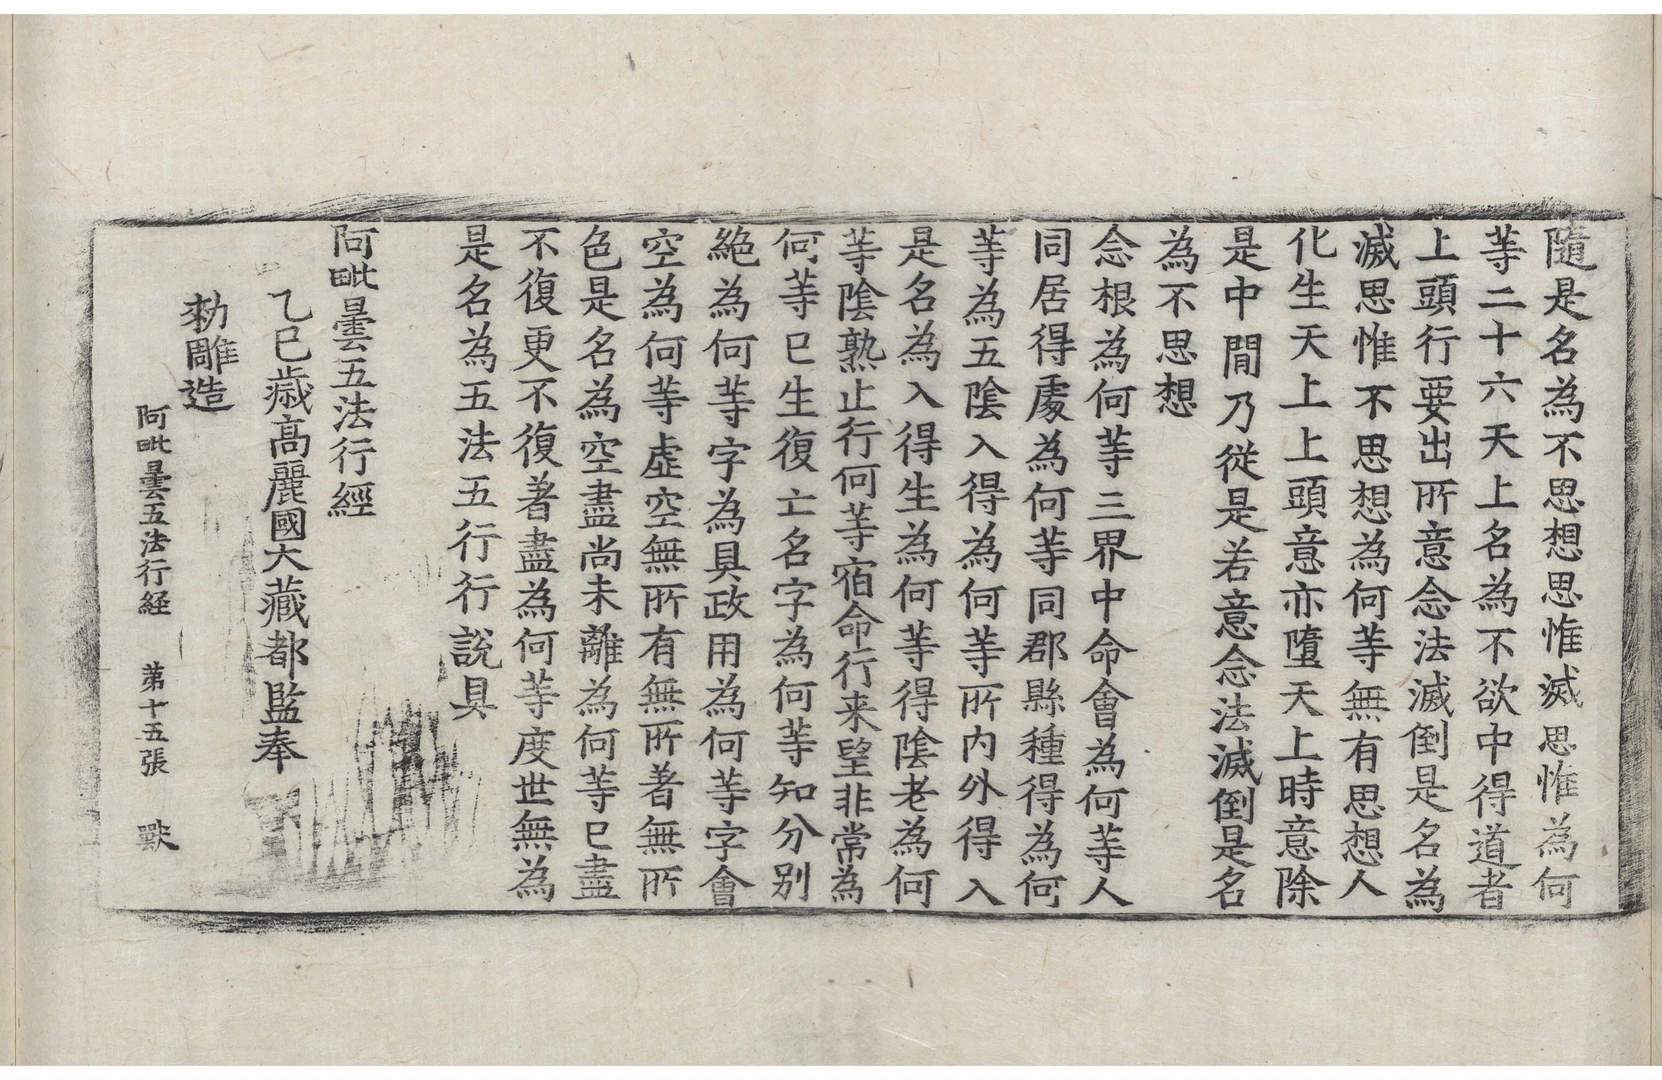 隨是名為不思想思惟滅思惟為何
等二十六天上名為不欲中得道者
上頭行要出所意念法滅倒是名為
滅思惟不思想為何等無有思想人
化生天上上頭意亦墮天上時意除
是中間乃從是若意念法滅倒是名
為不思想
念根為何等三界中命會為何等人
同居得處為何等同郡縣種得為何
等為五陰入得為何等所內外得入
是名為入得生為何等得陰老為何
等陰熟止行何等宿命行来望非常為
何等已生復亡名字為何等知分別
絶為何等字為具政用為何等字會
空為何等虛空無所有無所著無所
色是名為空盡尚未離為何等已盡
不復更不復著盡為何等度世無為
是名為五法五行行說具
阿毗曇五法行經
乙巳歲高麗國大藏都監奉
勅雕造
阿毗曇五法行経 第十五張 獸